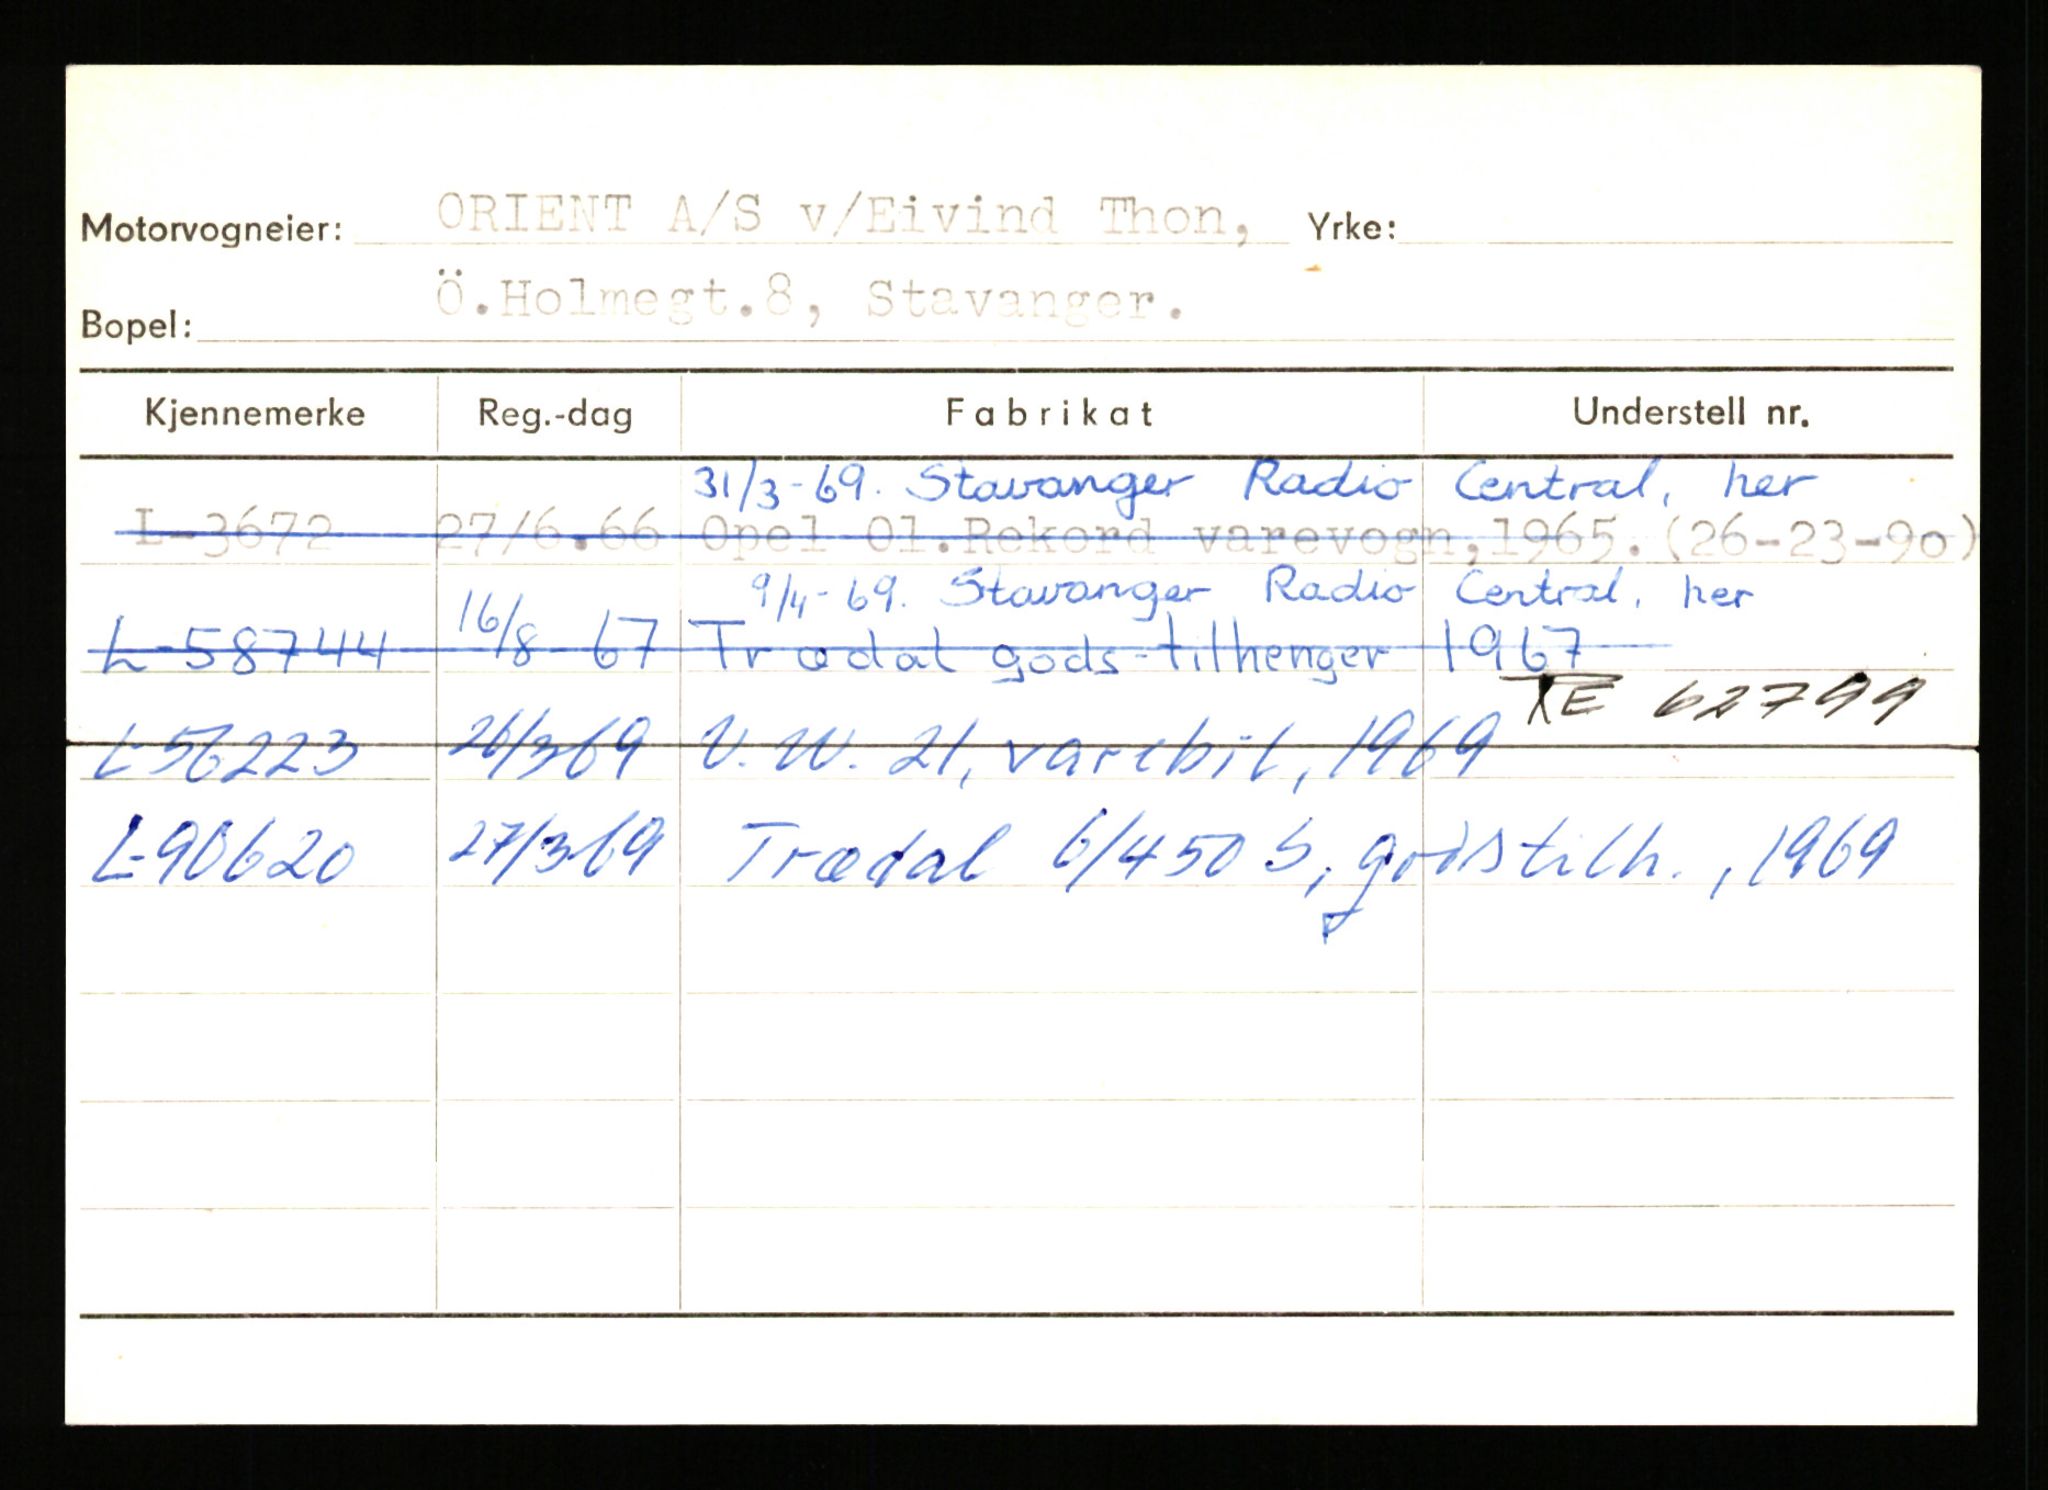 Motorvogneier: ORIENT A/S v/Eivind Thon, Yrke:
Bopel: Ö.Holmegt.8, Stavanger.
Kjennemerke Reg.-dag Fabrikat Understell nr.
31/3-69. Stavanger Radio Central, her
L-3672 27/6.66 Opel Ol.Rekord varevogn,1965.(26-23-90)
9/4-69. Stavanger Radio Central, her
L-58744 16/8-67 Trædal gods-tilhenger 1967
TE 62799
L-56223 26/3-69 V.W. 21, varebil, 1969
L-90620 27/3-69 Trædal 6/450 S, godstilh., 1969